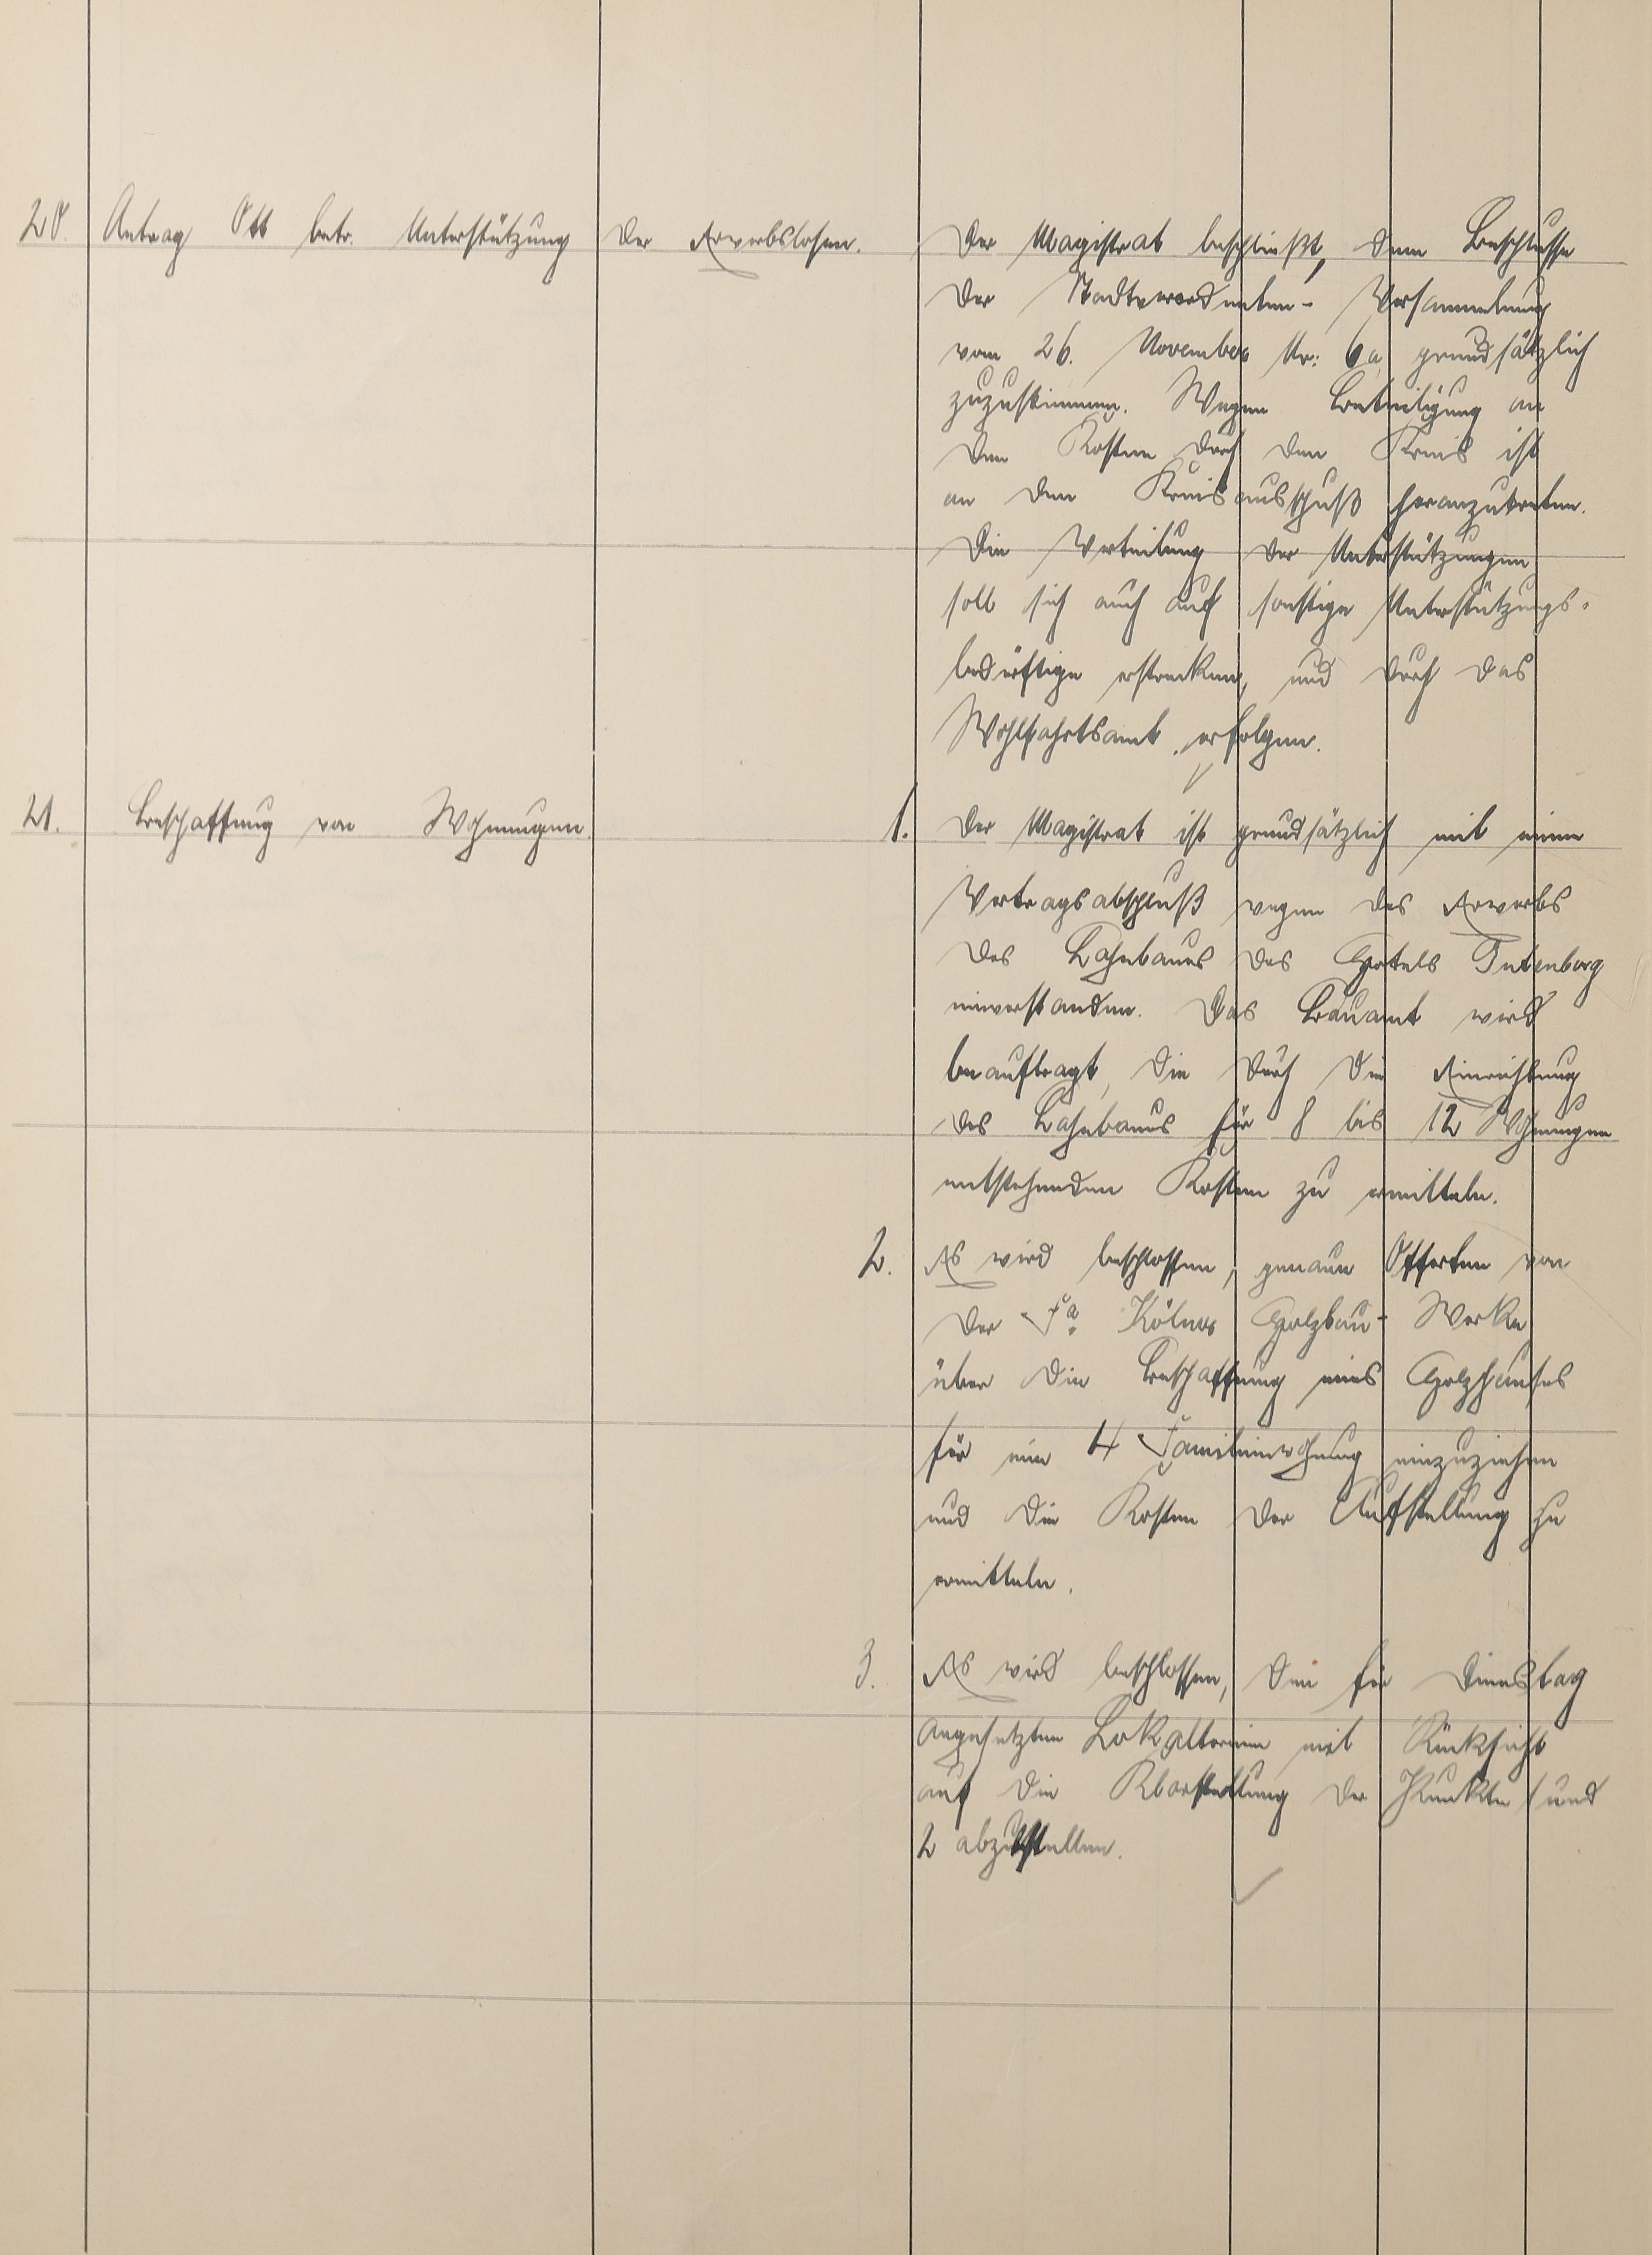 20. Antrag Ott betr. Unterstützung der Erwerbslosen.
Der Magistrat beschließt, dem Beschlusse
der Stadtverordneten- Versammlung
vom 26. November Nr: 6a grundsätzlich
zuzustimmen. Wegen Beteiligung an
den Kosten durch den Kreis ist
an den Kreisausschuß heranzutreten.
Die Verteilung der Unterstützungen
soll sich auch auf sonstige Unterstützungs-
bedürftige erstrecken, und durch das
Wohlfahrtsamt erfolgen.
21. Beschaffung von Wohnungen.
1. Der Magistrat ist grundsätzlich mit einem
Vertragsabschluß wegen des Erwerbs
des Lahnbaues des Hotels Gutenberg
einverstanden. Das Bauamt wird
beauftragt, die durch die Einrichtung
des Lahnbaues für 8 bis 12 Wohnungen
entstehenden Kosten zu ermitteln.
2. Es wird beschlossen, genaue Offerten von
der Fa. Kölner Holzbau- Werke
über die Beschaffung eines Holzhauses
für eine 4 Familienwohnung einzuziehen
und die Kosten der Aufstellung zu
ermitteln.
3. Es wird beschlossen, den für Dienstag
angesetzten Lokaltermin mit Rücksicht
auf die Klarstellung der Punkte 1 und
2 abzustellen.